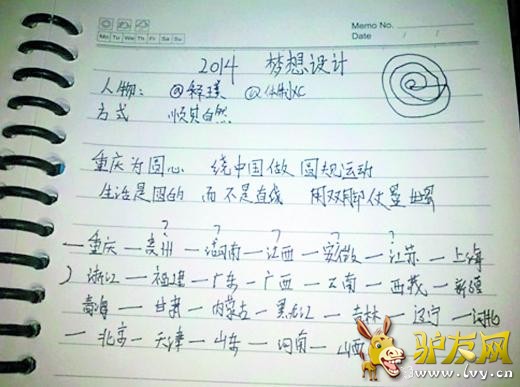 Memo No.
Mo Tu We Th Fr Sa Su
Date / /
2014 梦想设计
人物：
方式 顺其自然
重庆为圆心 绕中国做圆规运动
生活是圆的 而不是直线 用双脚丈量世界
? ? ? ? ?
一重庆一贵州一湖南一江西一安徽一江苏一上海
浙江一福建一广东一广西一云南一西藏一新疆
青海一甘肃一内蒙古一黑龙江一吉林一辽宁一河北
一北京一天津一山东一河南一山西
驴友网
www.lvy.cn